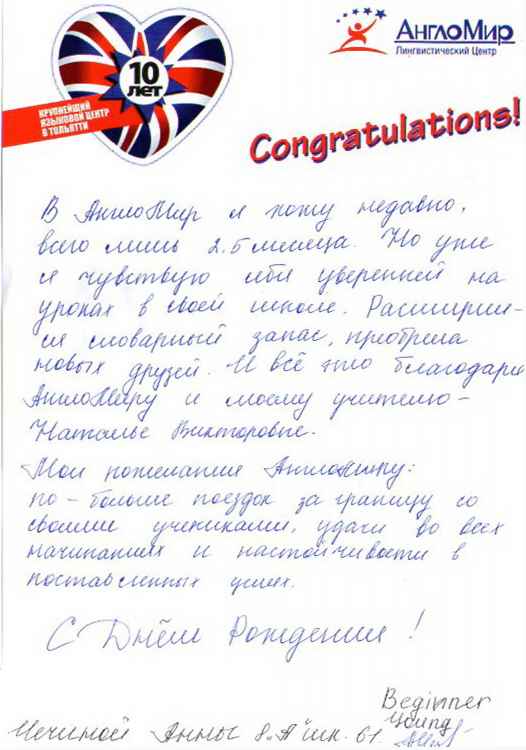 10
ЛЕТ
КРУПНЕЙШИЙ
ЯЗЫКОВОЙ ЦЕНТР
В ТОЛЬЯТТИ
АнглоМир
Лингвистический Центр
Congratulations!
В АнглоМир я хожу недавно,
всего лишь 2.5 месяца. Но уже
я чувствую себя уверенней на
уроках в своей школе. Расширил-
ся словарный запас, приобрела
новых друзей. И всё это благодаря
АнглоМиру и моему учителю-
Наталье Викторовне.
Мои пожелания АнглоМиру:
по-больше поездок за границу со
своими учениками, удачи во всех
начинаниях и настойчивости в
поставленных целях.
С Днём Рождения!
Beginner
Young
Анны 8 "А" шк. 61